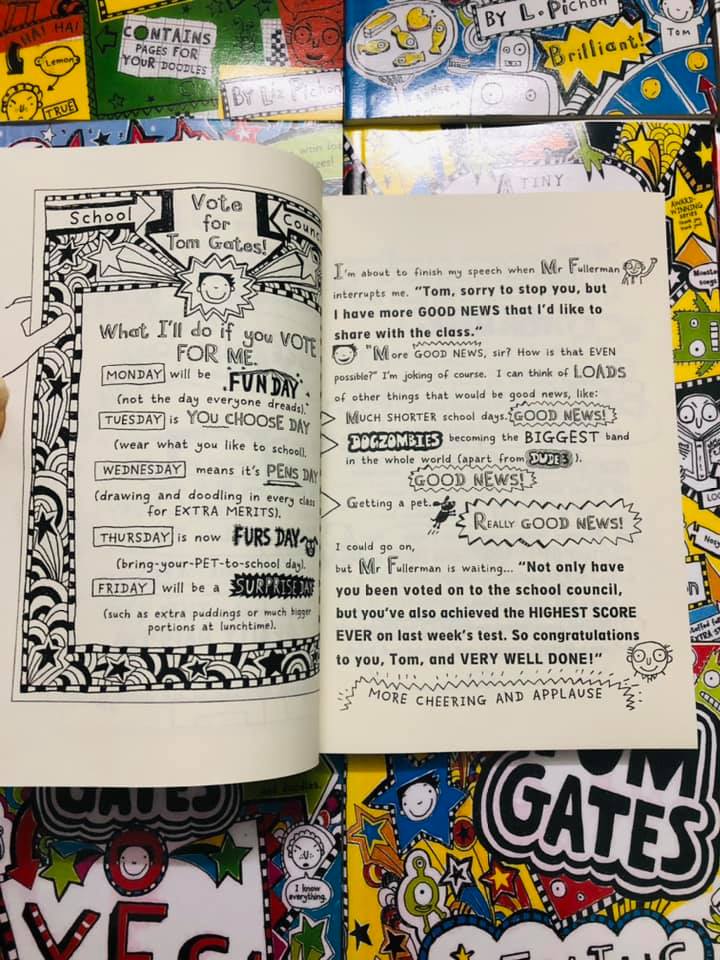 HA! HA!
Lemon
TRUE
CONTAINS
PAGES FOR
YOUR DOODLES
BY Liz Pichon
BY L. Pichon
Brilliant!
Tom
A TINY
AWARD-
WINNING
series
thank you
thank you!
School
Vote
for
Tom Gates!
What I'll do if you VOTE
FOR ME.
MONDAY will be FUN DAY
(not the day everyone dreads).
TUESDAY is YOU CHOOSE DAY
(wear what you like to school).
WEDNESDAY means it's PENS DAY
(drawing and doodling in every class
for EXTRA MERITS).
THURSDAY is now FURS DAY
(bring-your-PET-to-school day).
FRIDAY will be a SURPRISE DAY
(such as extra puddings or much bigger
portions at lunchtime).
I'm about to finish my speech when Mr Fullerman
interrupts me. "Tom, sorry to stop you, but
I have more GOOD NEWS that I'd like to
share with the class."
"More GOOD NEWS, sir? How is that EVEN
possible?" I'm joking of course. I can think of LOADS
of other things that would be good news, like:
MUCH SHORTER school days. GOOD NEWS!
DOGZOMBIES becoming the BIGGEST band
in the whole world (apart from DUDE3).
GOOD NEWS!
Getting a pet.
REALLY GOOD NEWS!
I could go on,
but Mr Fullerman is waiting... "Not only have
you been voted on to the school council,
but you've also achieved the HIGHEST SCORE
EVER on last week's test. So congratulations
to you, Tom, and VERY WELL DONE!"
MORE CHEERING AND APPLAUSE
GATES
I know
everything.
YES
TOM
GATES